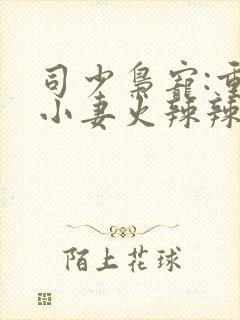 司少枭宠:重
小妻火辣辣
陌上花球